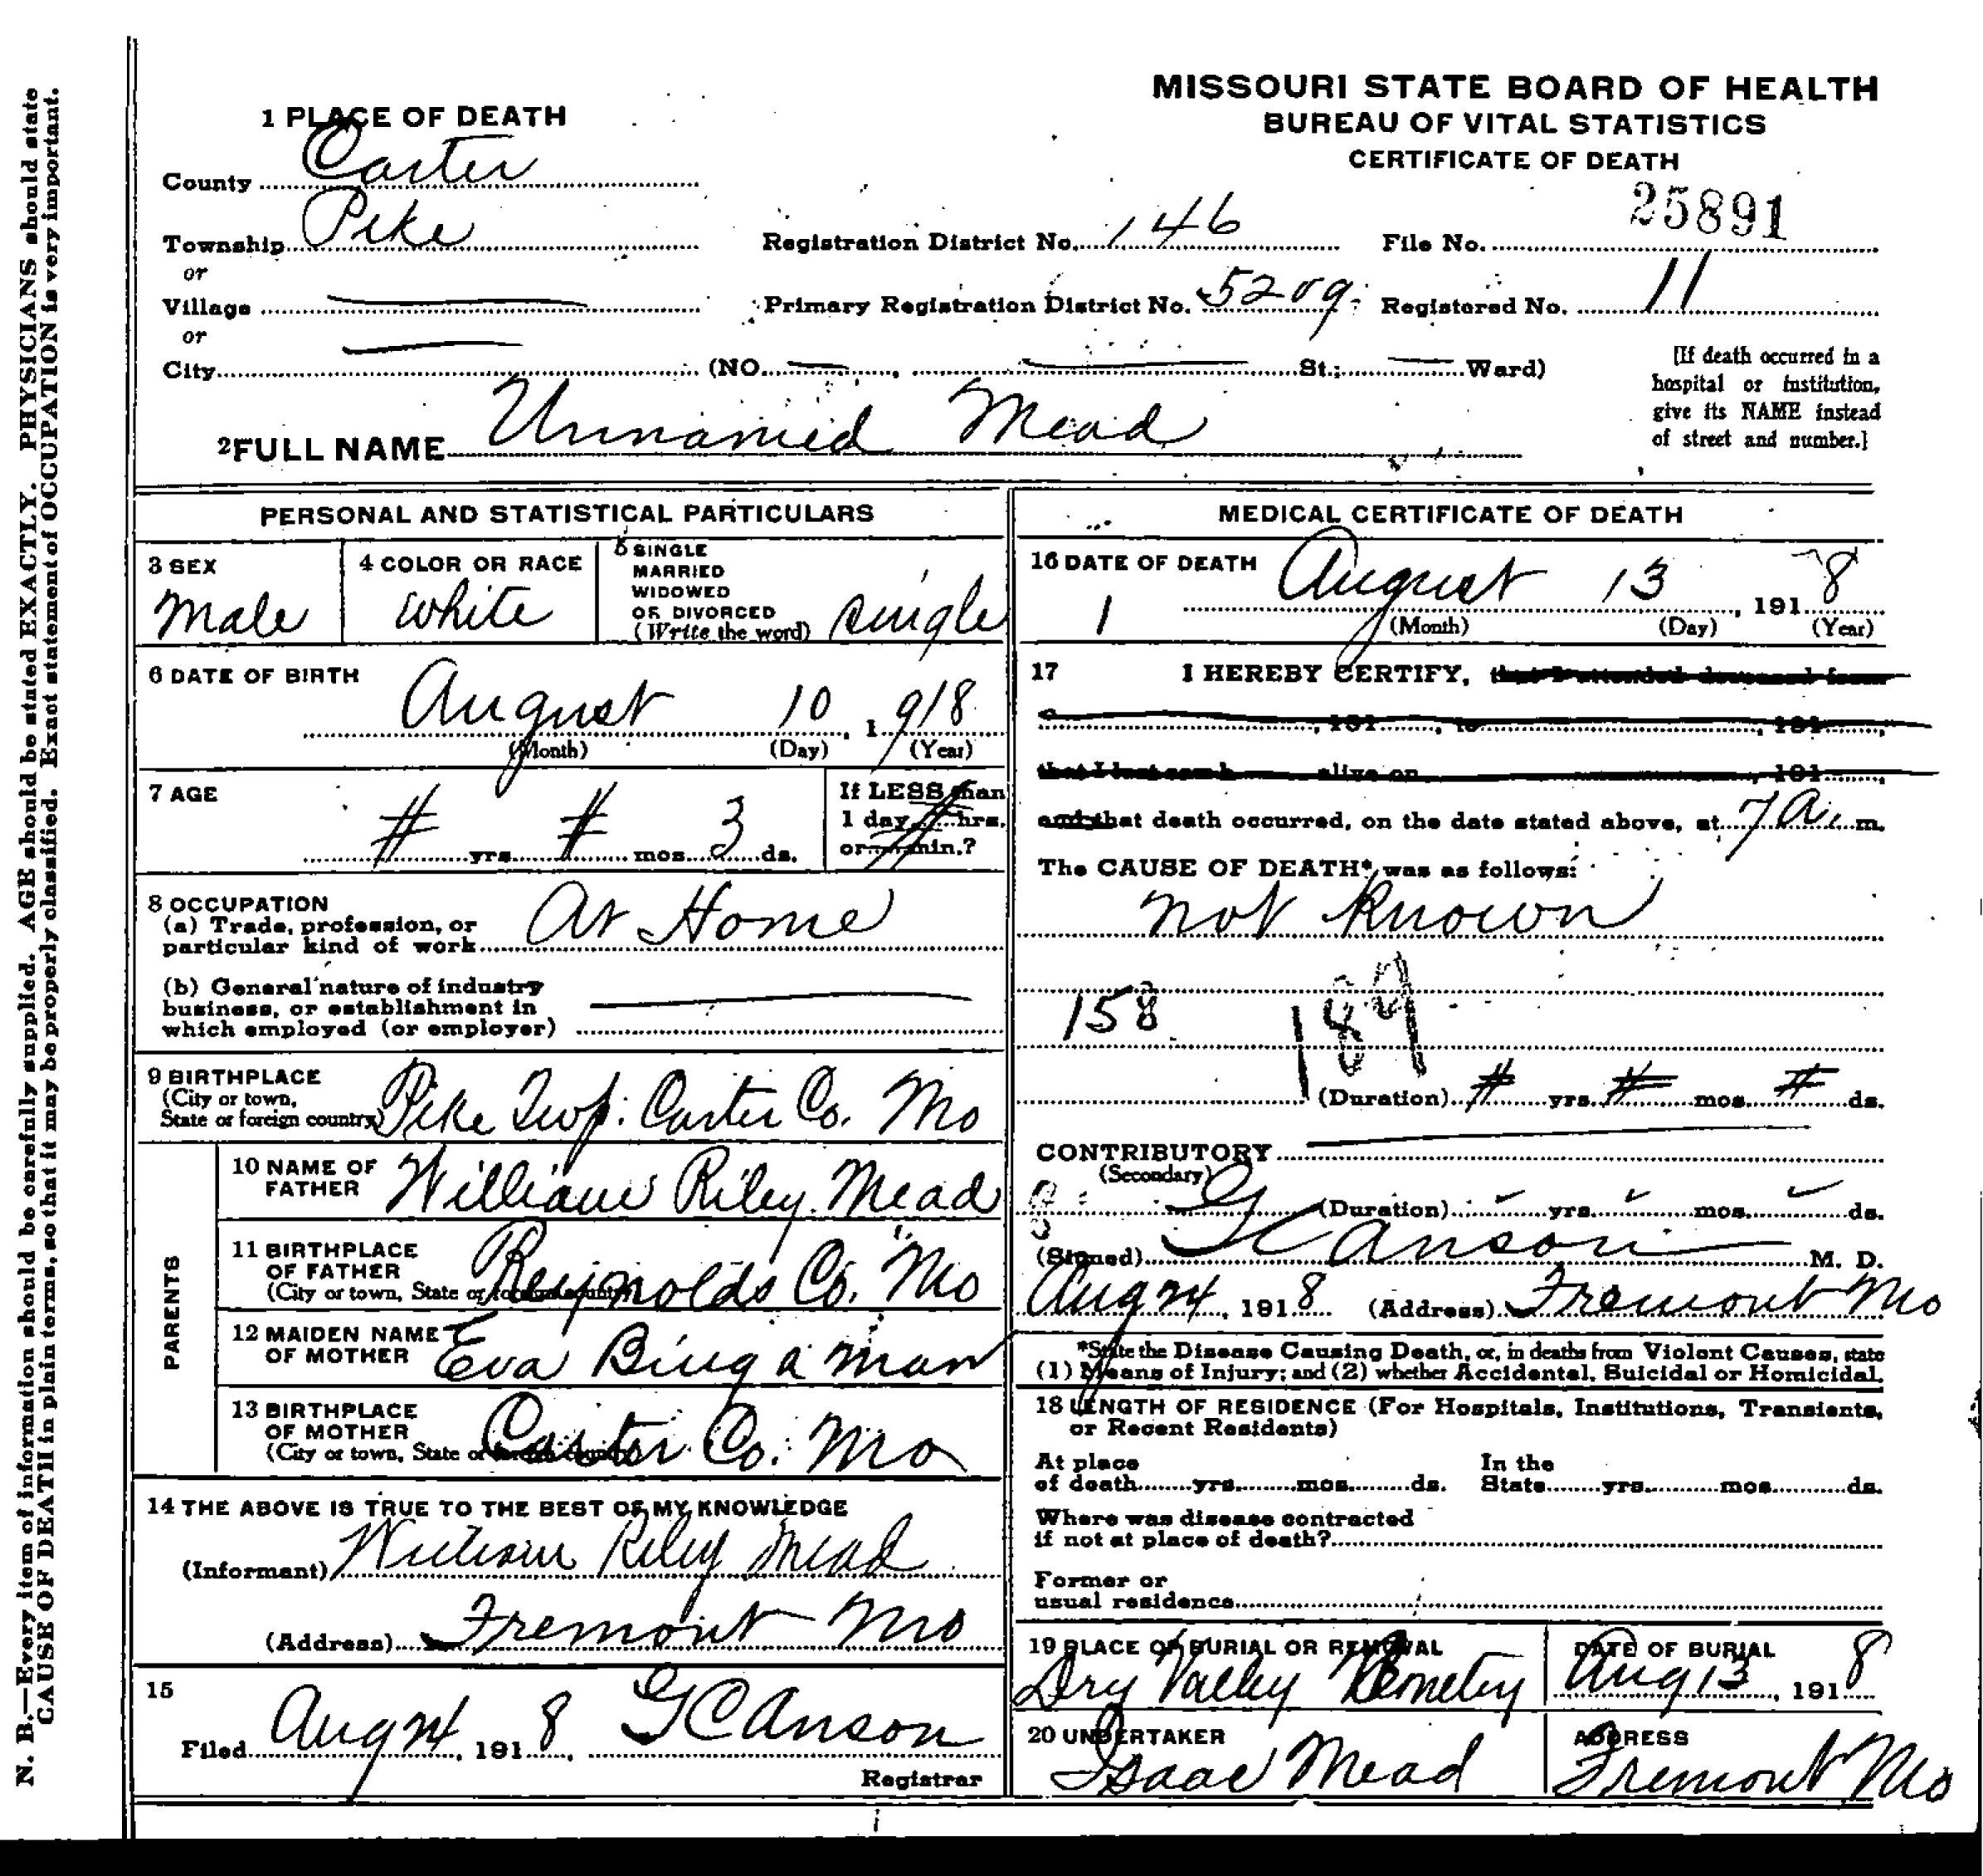 N. B.—Every item of information should be carefully supplied. AGE should be stated EXACTLY. PHYSICIANS should state
CAUSE OF DEATH in plain terms, so that it may be properly classified. Exact statement of OCCUPATION is very important.
MISSOURI STATE BOARD OF HEALTH
BUREAU OF VITAL STATISTICS
CERTIFICATE OF DEATH
1 PLACE OF DEATH
County Carter
Township Pike
Registration District No. 146
File No. 25891
or
Village
Primary Registration District No. 5209
Registered No. 11
or
City (NO. , St.; Ward)
[If death occurred in a
hospital or institution,
give its NAME instead
of street and number.]
2 FULL NAME Unnamed Mead
PERSONAL AND STATISTICAL PARTICULARS
3 SEX
Male
4 COLOR OR RACE
White
5 SINGLE
MARRIED
WIDOWED
OR DIVORCED
(Write the word) single
6 DATE OF BIRTH
August 10, 1918
(Month) (Day) (Year)
7 AGE
# yrs. # mos. 3 ds.
If LESS than
1 day, hrs.
or min.?
8 OCCUPATION
(a) Trade, profession, or
particular kind of work At Home
(b) General nature of industry
business, or establishment in
which employed (or employer)
9 BIRTHPLACE
(City or town,
State or foreign country) Pike Twp. Carter Co. Mo
PARENTS
10 NAME OF
FATHER William Riley Mead
11 BIRTHPLACE
OF FATHER
(City or town, State or foreign country) Reynolds Co. Mo
12 MAIDEN NAME
OF MOTHER Eva Bingaman
13 BIRTHPLACE
OF MOTHER
(City or town, State or foreign country) Carter Co. Mo
14 THE ABOVE IS TRUE TO THE BEST OF MY KNOWLEDGE
(Informant) William Riley Mead
(Address) Fremont Mo
15
Filed Aug 24, 1918, G C Anson
Registrar
MEDICAL CERTIFICATE OF DEATH
16 DATE OF DEATH
1 August 13, 1918
(Month) (Day) (Year)
17 I HEREBY CERTIFY, that I attended deceased from
, 191 , to , 191 ,
that I last saw h alive on , 191 ,
and that death occurred, on the date stated above, at 7 A. m.
The CAUSE OF DEATH* was as follows:
not Known
158 189
(Duration) # yrs. # mos. # ds.
CONTRIBUTORY
(Secondary)
(Duration) yrs. mos. ds.
(Signed) G C Anson M. D.
Aug 24, 1918 (Address) Fremont Mo
*State the Disease Causing Death, or, in deaths from Violent Causes, state
(1) Means of Injury; and (2) whether Accidental, Suicidal or Homicidal.
18 LENGTH OF RESIDENCE (For Hospitals, Institutions, Transients,
or Recent Residents)
At place In the
of death yrs. mos. ds. State yrs. mos. ds.
Where was disease contracted
if not at place of death?
Former or
usual residence
19 PLACE OF BURIAL OR REMOVAL
Dry Valley Cemetery
DATE OF BURIAL
Aug 13, 1918
20 UNDERTAKER
Isaac Mead
ADDRESS
Fremont Mo